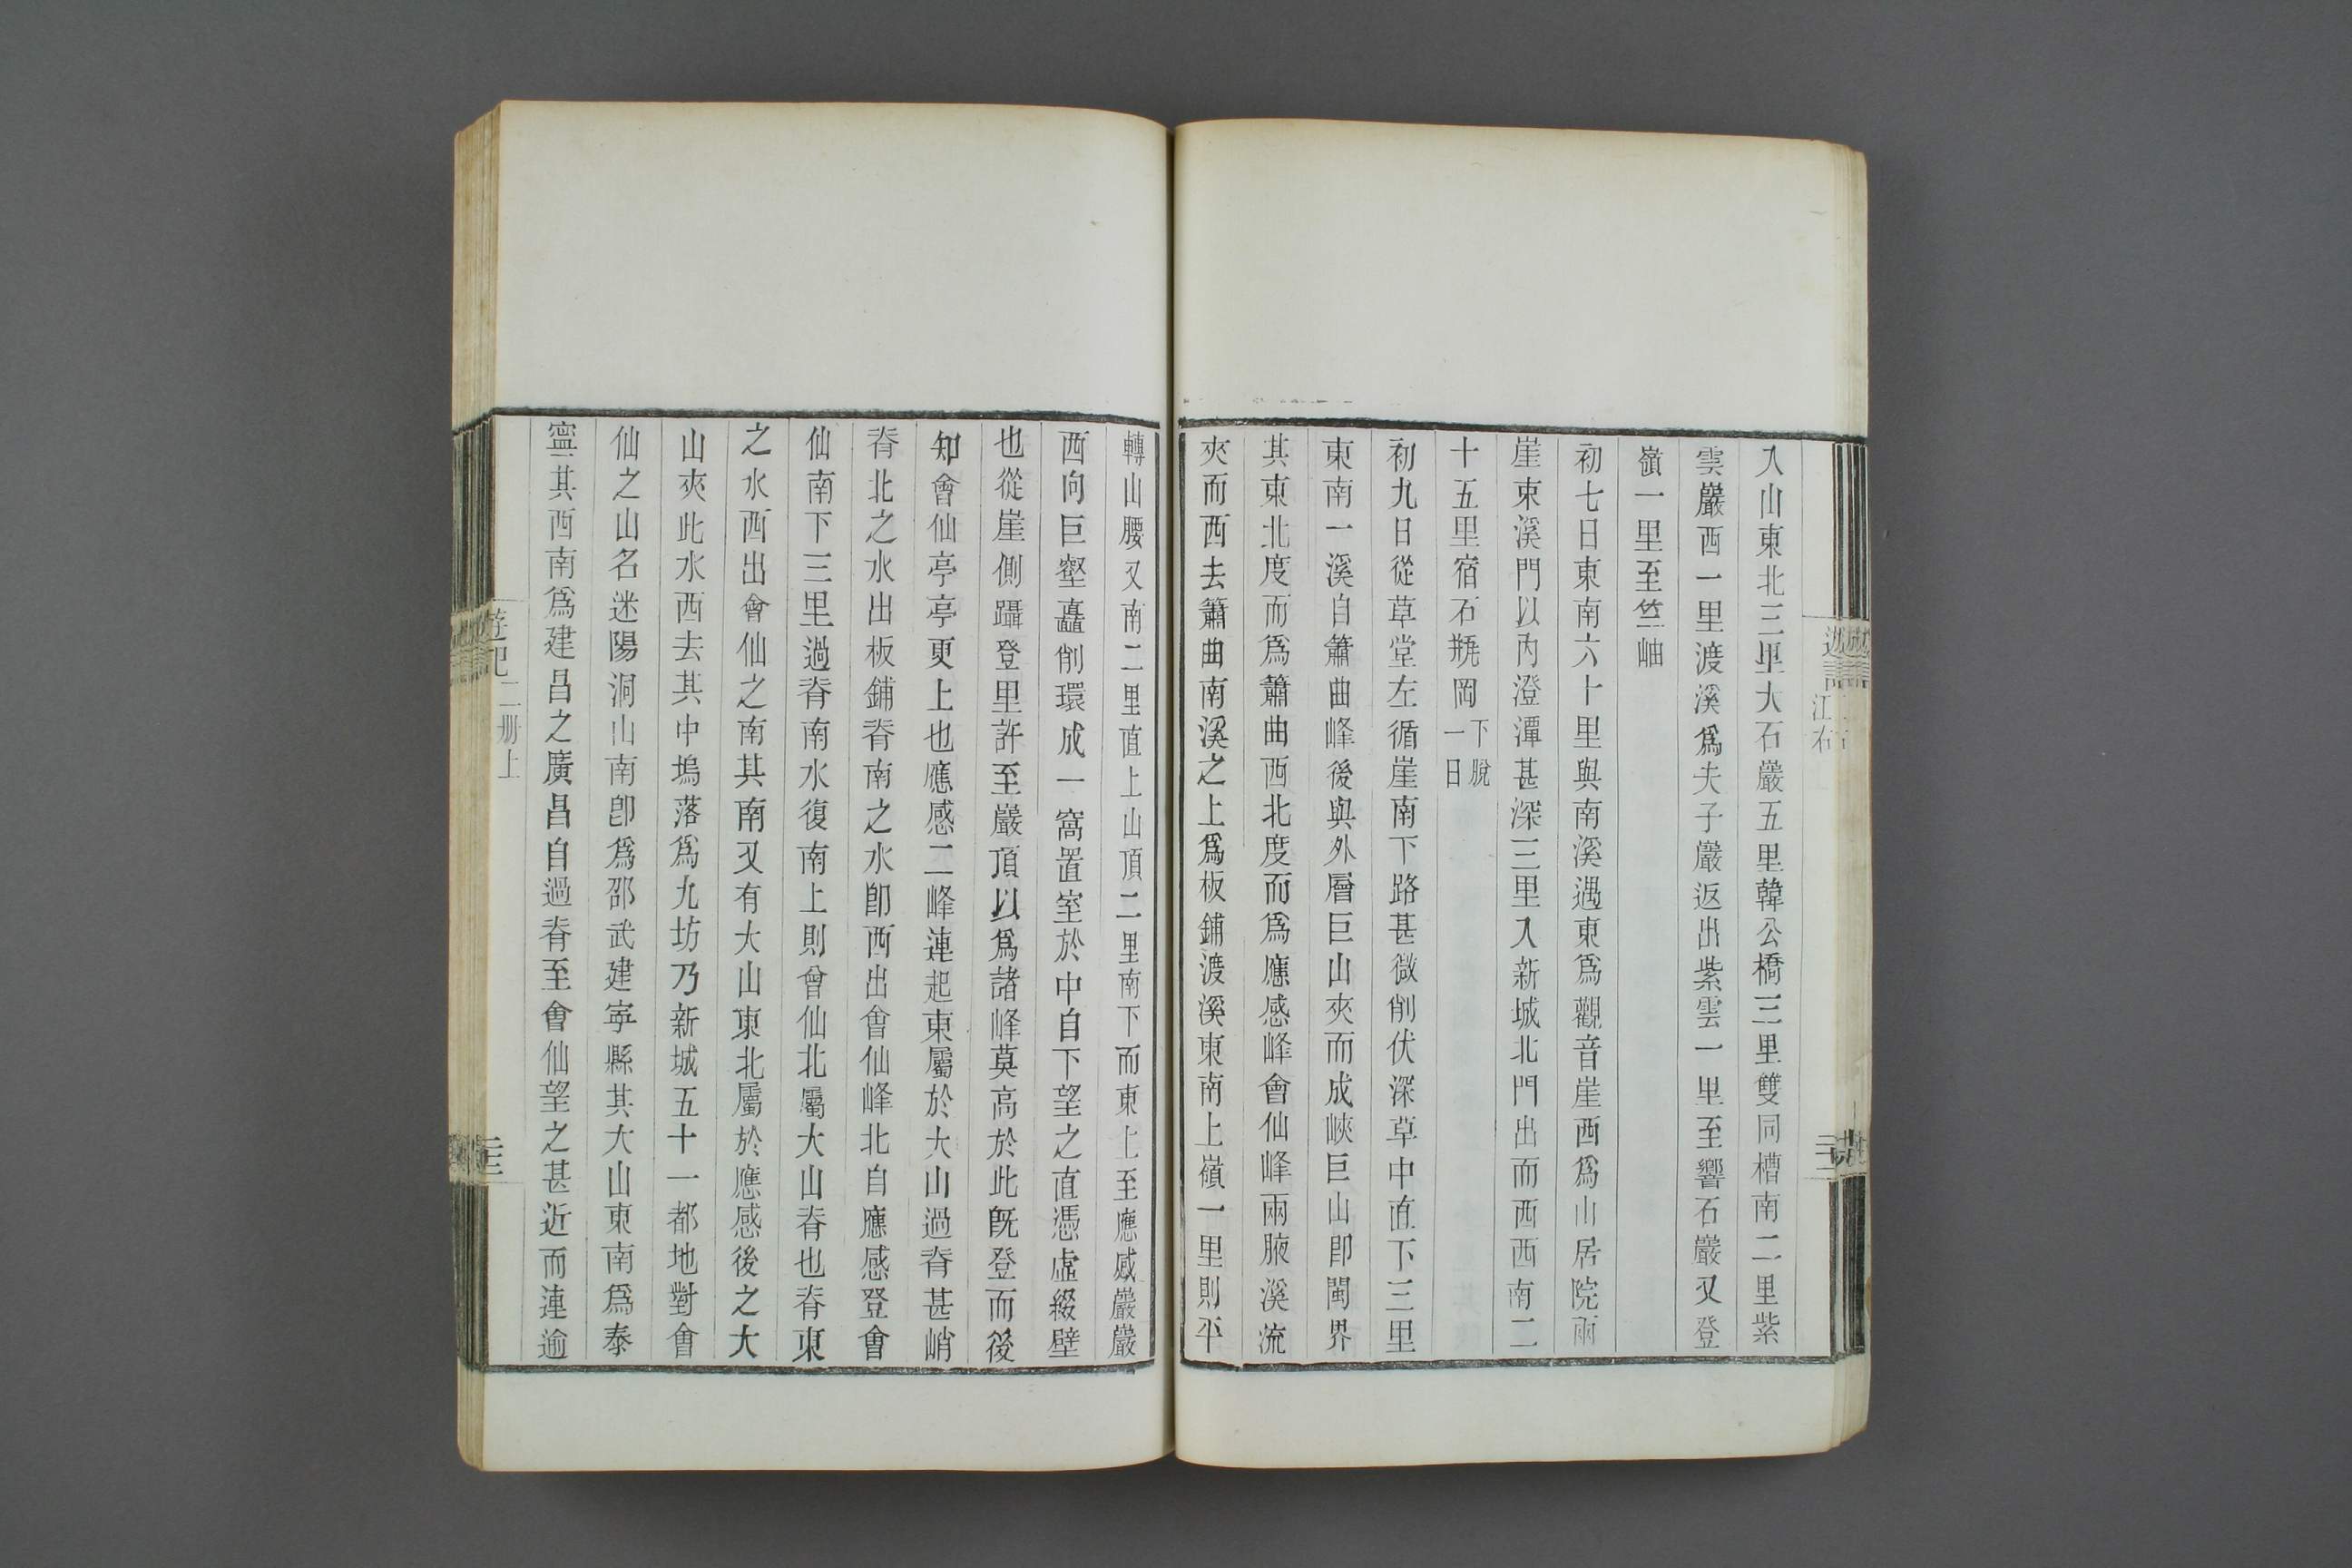 入山東北三里大石巖五里韓公橋三里雙同槽南二里紫
雲巖西一里渡溪爲夫子巖返出紫雲一里至響石巖又登
嶺一里至竺岫
初七日東南六十里與南溪遇東爲觀音崖西爲山居院兩
崖束溪門以內澄潭甚深三里入新城北門出而西西南二
十五里宿石瓶岡下脫一日
初九日從草堂左循崖南下路甚微削伏深草中直下三里
東南一溪自簫曲峰後與外層巨山夾而成峽巨山卽閩界
其東北度而爲簫曲西北度而爲應感峰會仙峰兩腋溪流
夾而西去簫曲南溪之上爲板鋪渡溪東南上嶺一里則平
轉山腰又南二里直上山頂二里南下而東上至應感巖巖
西向巨壑矗削環成一窩置室於中自下望之直憑虛綴壁
也從崖側躡登里許至巖頂以爲諸峰莫高於此旣登而後
知會仙亭亭更上也應感二峰連起東屬於大山過脊甚峭
脊北之水出板鋪脊南之水卽西出會仙峰北自應感登會
仙南下三里過脊南水復南上則會仙北屬大山脊也脊東
之水西出會仙之南其南又有大山東北屬於應感後之大
山夾此水西去其中塢落爲九坊乃新城五十一都地對會
仙之山名迷陽洞山南卽爲邵武建寧縣其大山東南爲泰
寧其西南爲建昌之廣昌自過脊至會仙望之甚近而連逾
遊記
二册上
江右